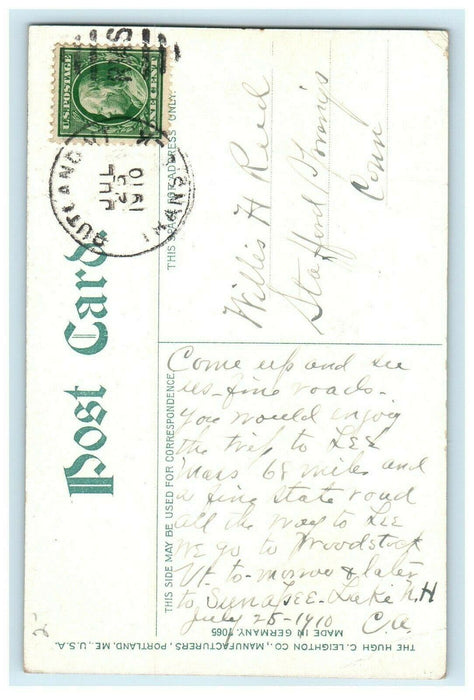 U.S. POSTAGE
ONE CENT
RUTLAND
JUL
25
1910
TRANSIT
Post Card.
THIS SPACE FOR ADDRESS ONLY.
Willis H Reed
Stafford Springs
Conn
THIS SIDE MAY BE USED FOR CORRESPONDENCE.
Come up and see
us - fine roads -
you would enjoy
the trip to LEE
Mass 68 miles and
a fine state road
all the way to LEE
WE go to Woodstock
Vt to-morrow & later
to SunapEE Lake N.H
July 25-1910
C.A.
MADE IN GERMANY. 7065
THE HUGH C. LEIGHTON CO., MANUFACTURERS, PORTLAND, ME., U.S.A.